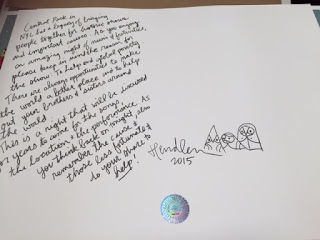 Central Park in
NYC has a legacy of bringing
people together for historic shows
and important causes. As you enjoy
an amazing night of music & festivities,
please keep in mind the reason for
the show: To help end global poverty.
There are always opportunities to make
the world a better place and to help
out your brothers & sisters around
the world.
This is a night that will be discussed
for years to come for the songs,
the location & the performance. As
you think back on tonight, also
remember the cause &
those less fortunate &
to your share to
help!
2015